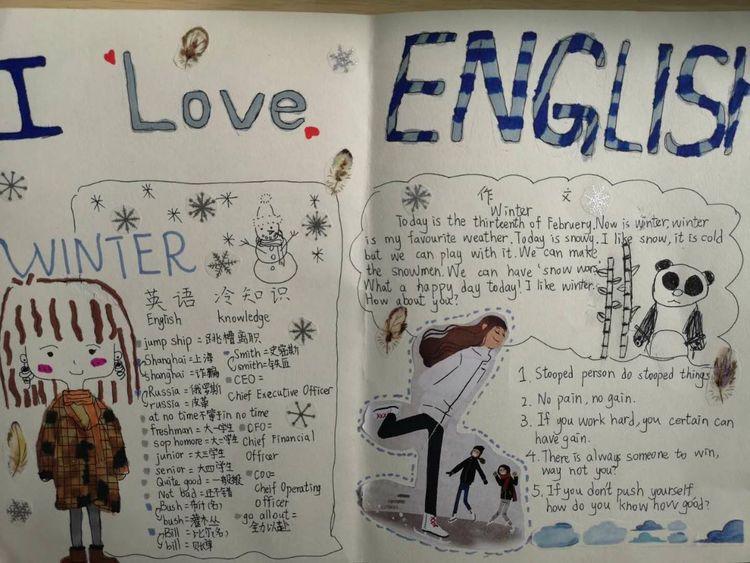 I Love
ENGLISH
WINTER
英语 冷知识
English knowledge
jump ship = 跳槽离职
Shanghai = 上海
shanghai = 诈骗
Russia = 俄罗斯
russia = 皮革
at no time 不等于 in no time
freshman = 大一学生
sophomore = 大二学生
junior = 大三学生
senior = 大四学生
Quite good = 一般般
Not bad = 还不错
Bush = 布什(名)
bush = 灌木丛
Bill = 比尔(名)
bill = 账单
Smith = 史密斯
smith = 铁匠
CEO =
Chief Executive Officer
CFO =
Chief Financial
Officer
COO =
Cheif Operating
Officer
go all out =
全力以赴
作 文
Winter
Today is the thirteenth of February. Now is winter, winter
is my favourite weather. Today is snowy. I like snow, it is cold
but we can play with it. We can make
the snowmen. We can have 'snow war.'
What a happy day today! I like winter.
How about you?
1. Stooped person do stooped things
2. No pain, no gain.
3. If you work hard, you certain can
have gain.
4. There is always someone to win,
way not you?
5. If you don't push yourself,
how do you know how good?